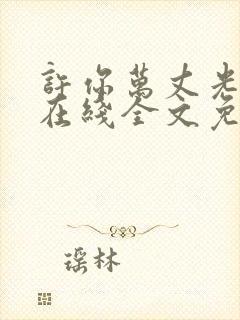 許你萬丈光
在綫全文免
瑶林